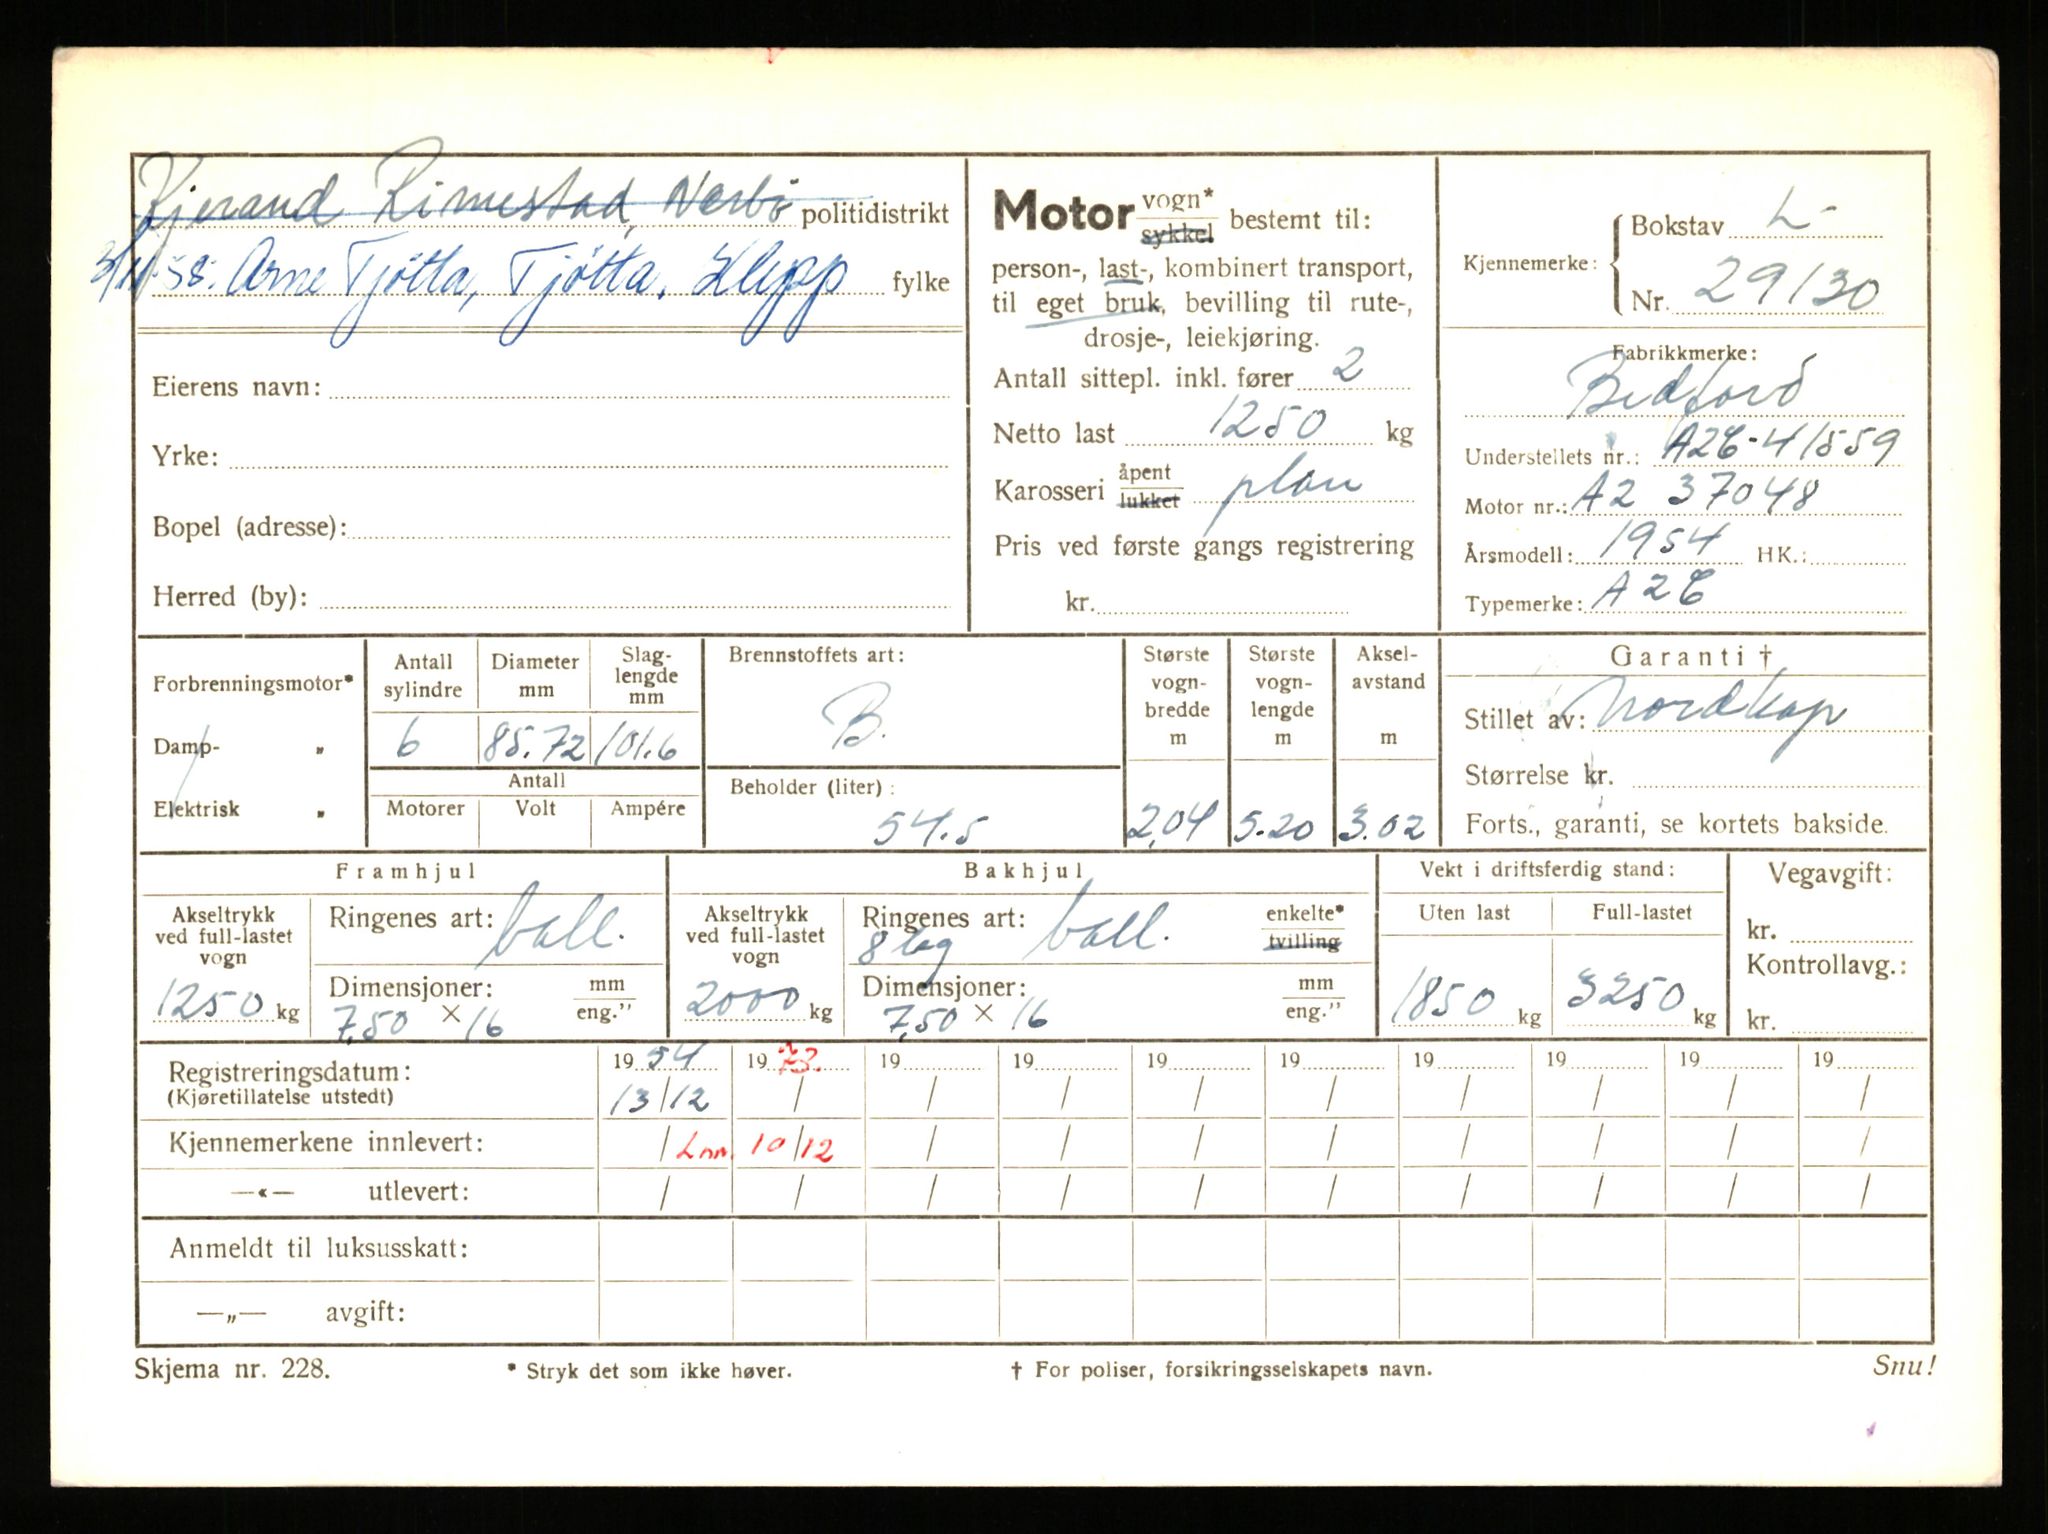 Kjerand Rimestad, Nærbø politidistrikt
3/11-58. Arne Tjøtta, Tjøtta, Klepp fylke
Eierens navn:
Yrke:
Bopel (adresse):
Herred (by):
Motor vogn* sykkel bestemt til:
person-, last-, kombinert transport,
til eget bruk, bevilling til rute-,
drosje-, leiekjøring.
Antall sittepl. inkl. fører 2
Netto last 1250 kg
Karosseri åpent lukket plan
Pris ved første gangs registrering
kr.
Kjennemerke: Bokstav L-
Nr. 29130
Fabrikkmerke:
Bedford
Understellets nr.: A2C-41559
Motor nr.: A2 37048
Årsmodell: 1954 HK.:
Typemerke: A2C
Forbrenningsmotor*
Damp- "
Elektrisk "
Antall sylindre
6
Diameter mm
85.72
Slag-lengde mm
101.6
Antall
Motorer Volt Ampére
Brennstoffets art:
B.
Beholder (liter):
54.5
Største vogn-bredde m
2,04
Største vogn-lengde m
5.20
Aksel-avstand m
3.02
Garanti †
Stillet av: Nordkap
Størrelse kr.
Forts., garanti, se kortets bakside.
Framhjul
Akseltrykk ved full-lastet vogn
1250 kg
Ringenes art: ball.
Dimensjoner: mm eng."
7,50 × 16
Bakhjul
Akseltrykk ved full-lastet vogn
2000 kg
Ringenes art: enkelte* tvilling
8 lag ball.
Dimensjoner: mm eng."
7,50 × 16
Vekt i driftsferdig stand:
Uten last Full-lastet
1850 kg 3250 kg
Vegavgift:
kr.
Kontrollavg.:
kr.
Registreringsdatum: 19 54 19 73. 19 19 19 19 19 19 19 19
(Kjøretillatelse utstedt) 13/12 / / / / / / / / /
Kjennemerkene innlevert: / Lnn. 10/12 / / / / / / / /
—«— utlevert: / / / / / / / / / /
Anmeldt til luksusskatt:
—„— avgift:
Skjema nr. 228. * Stryk det som ikke høver. † For poliser, forsikringsselskapets navn. Snu!